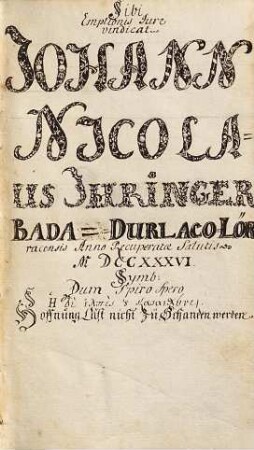 Sibi
Emptionis Jure
vindicat
JOHANN
NICOLA=
US IHRINGER
BADA= DURLACO-LÖR
racensis Anno Recuperatæ Salutis
M DCCXXXVI
Symb:
Dum Spiro Spero
Hoffnung Läst nicht Zu Schanden werden